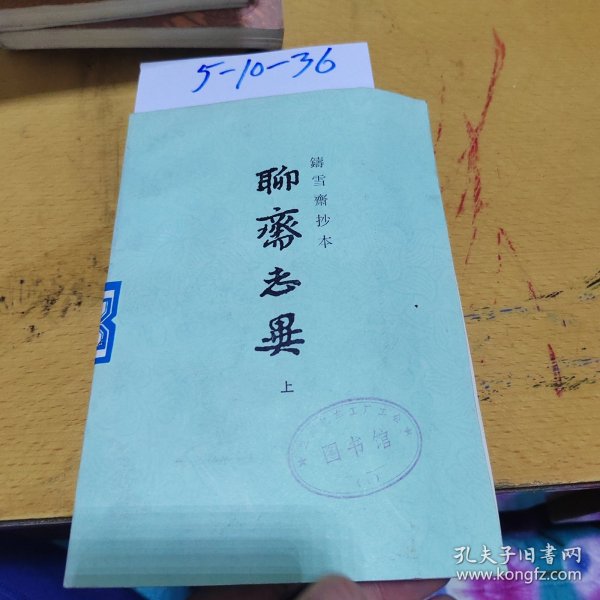 5-10-36
鑄雪齋抄本
聊齋志異
上
图书馆
孔夫子旧书网
www.kongfz.com